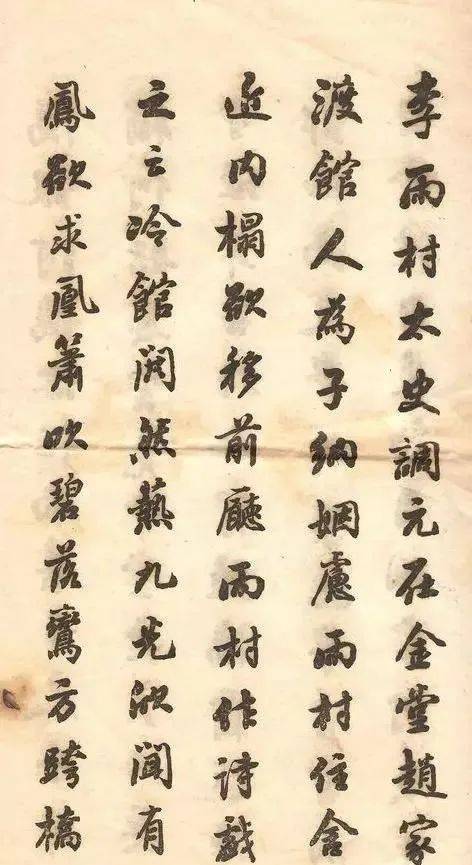 李雨村太史調元在金堂趙家
渡館人為子納姻慮雨村住舍
近內榻欲移前廳雨村作詩戲
之云冷館閴然熱九光欣聞有
鳳欲求凰簫吹碧落鸞方跨橋